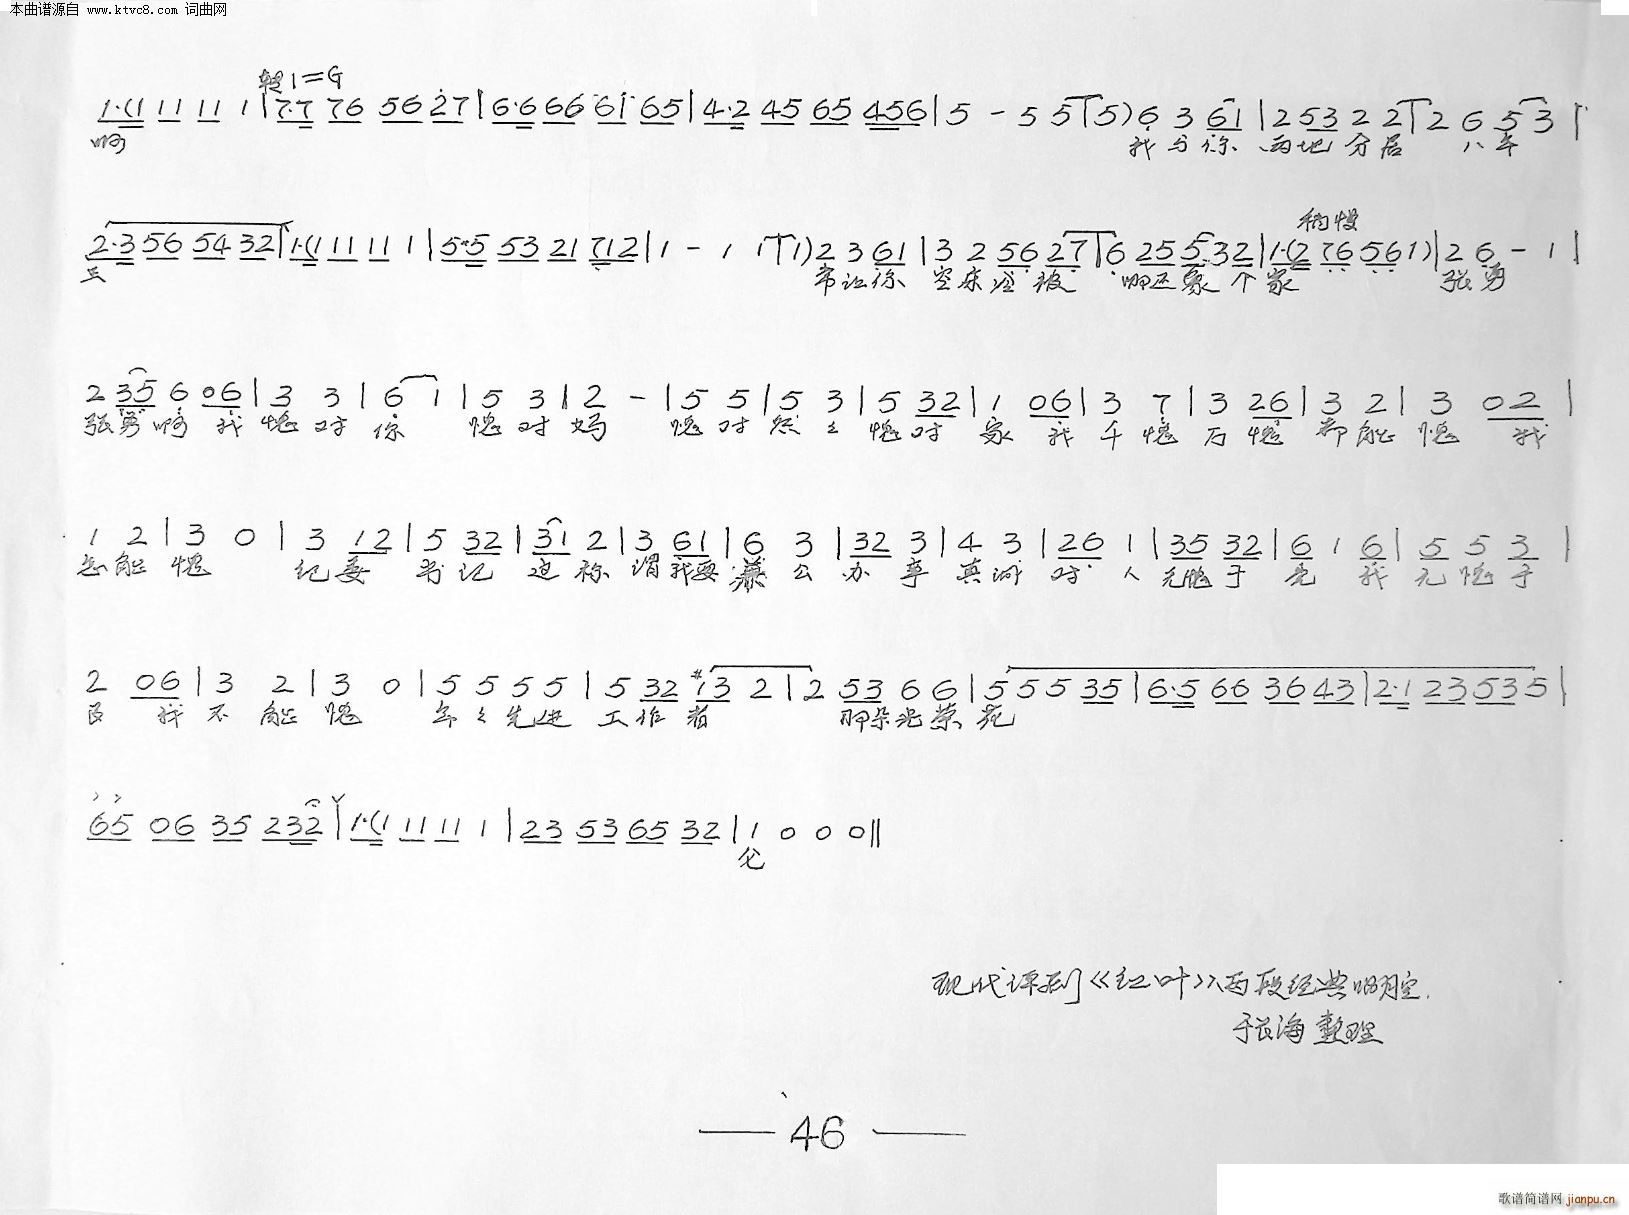 本曲谱源自 www.ktvc8.com 词曲网
转1=G
1·(1 11 11 1 | 7·7 76 56 27 | 6·6 66 61 65 | 4·2 45 65 456 | 5 - 5 5 | 5) 6 3 61 | 2 53 2 2 | 2 6 5 3 |
啊 我与你 两地分居 八年
稍慢
2·3 56 54 32 | 1·(1 11 11 1 | 5·5 53 21 712 | 1 - 1 1 | 1) 2 3 61 | 3 2 56 27 | 6 25 5·3 32 | 1·(2 76 56 1) | 2 6 - 1 |
常让你 空床 被 哪还象个家 张勇
2 35 6 06 | 3 3 | 6 1 | 5 3 | 2 - | 5 5 | 5 3 | 5 32 | 1 06 | 3 7 | 3 26 | 3 2 | 3 02 |
张勇啊 我愧对你 愧对妈 愧对 愧对家 我千愧万愧都能愧 我
1 2 | 3 0 | 3 12 | 5 32 | 31 2 | 3 61 | 6 3 | 32 3 | 4 3 | 26 1 | 35 32 | 6 1 6 | 5 5 3 |
怎能愧 纪委书记 称谓 我要 公办事真诚对人 无愧于党 我无愧于
2 06 | 3 2 | 3 0 | 5 5 5 5 | 5 32 #13 2 | 2 53 6 6 | 5 5 5 35 | 6·5 66 36 43 | 2·1 23 53 5 |
民 我不能愧 年々先进工作者 那朵光荣花
65 06 35 232 | 1·(1 11 11 1 | 23 53 65 32 | 1 0 0 0 ‖
现代评剧《红叶》两段经典唱腔.
于长海 整理
— 46 —
歌谱简谱网 jianpu.cn